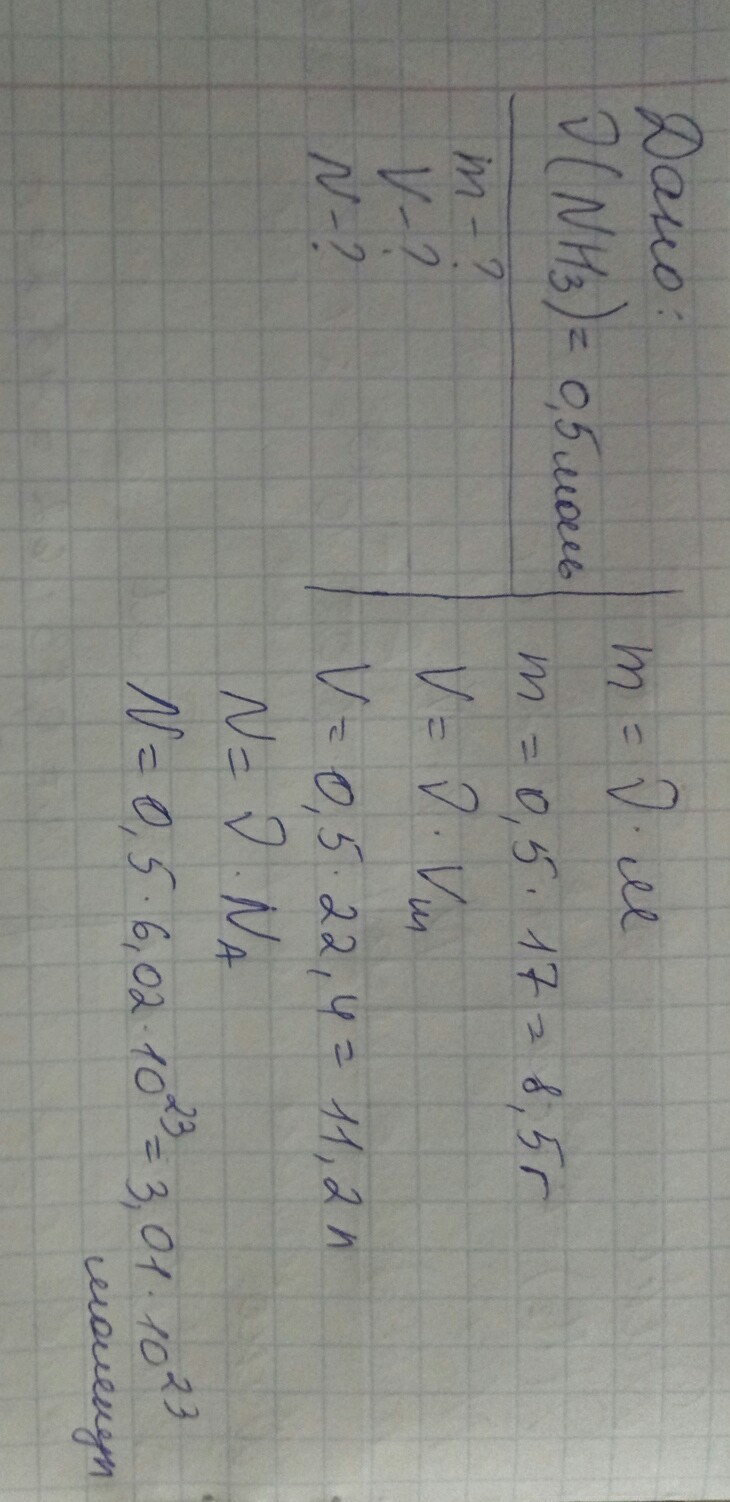 Дано:
ν(NH₃) = 0,5 моль
m - ?
V - ?
N - ?
m = ν · M
m = 0,5 · 17 = 8,5 г
V = ν · Vm
V = 0,5 · 22,4 = 11,2 л
N = ν · NA
N = 0,5 · 6,02 · 10²³ = 3,01 · 10²³
молекул